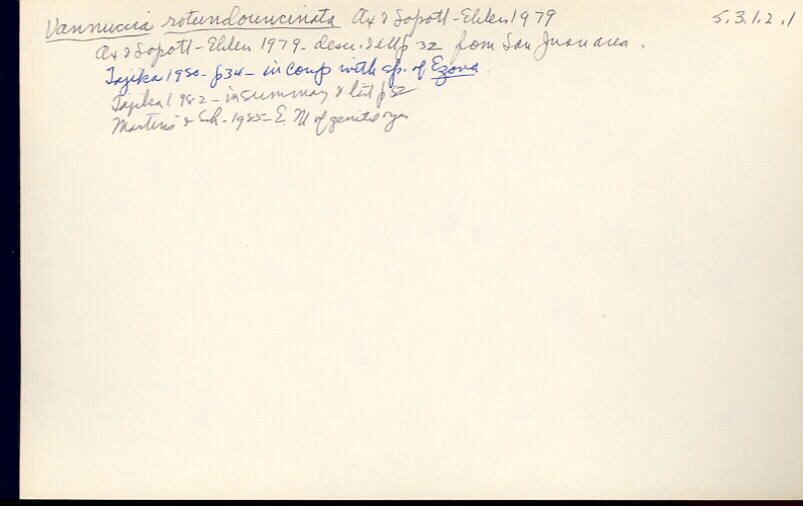 Vannuccia rotundouncinata Ax & Sopott-Ehlers 1979 5.3.1.2.1
Ax & Sopott-Ehlers 1979 - descr. & allf p 32 from San Juan area.
Tajika 1980 - p 34 - in comp with sp. of Ezona.
Tajika 1982 - in summary & list p 52
Martens & Sch - 1985 - E.M of genital orgs